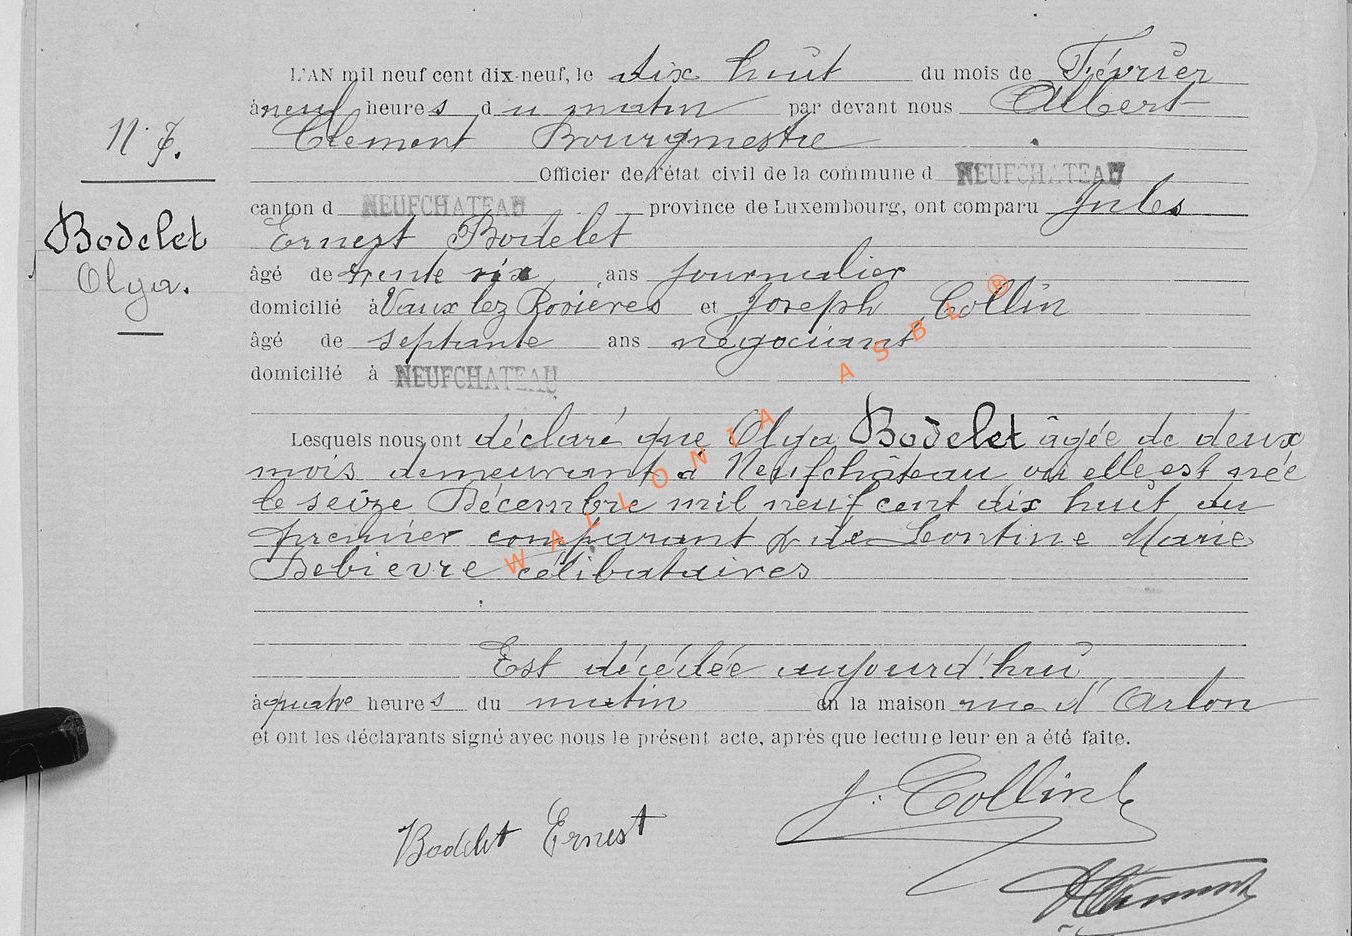 L'AN mil neuf cent dix-neuf, le dix huit du mois de Février
à neuf heures du matin par devant nous Albert
Clement Bourgmestre
N° 7.
Officier de l'état civil de la commune d NEUFCHATEAU
canton d NEUFCHATEAU province de Luxembourg, ont comparu Jules
Bodelet
Olga.
Ernest Bodelet
âgé de trente six ans journalier
domicilié à Vaux lez Rosières et Joseph Collin
âgé de septante ans négociant
domicilié à NEUFCHATEAU
Lesquels nous ont déclaré que Olga Bodelet âgée de deux
mois demeurant à Neufchâteau où elle est née
le seize Décembre mil neuf cent dix huit du
premier comparant & de Leontine Marie
Debievre célibataires
Est décédée aujourd'hui
à quatre heures du matin en la maison rue d'Arlon
et ont les déclarants signé avec nous le présent acte, après que lecture leur en a été faite.
J. Collin
Bodelet Ernest
AClement
WALLONIA ASBL ®